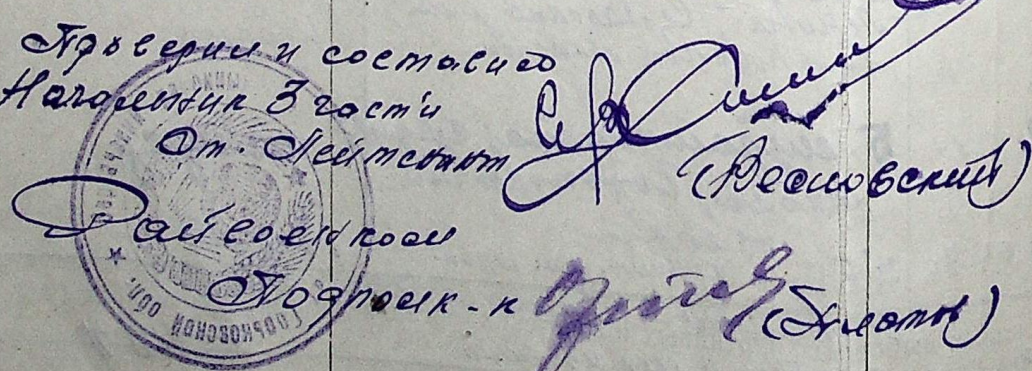 Проверил и составил
Начальник 3 части
Ст. Лейтенант
(Весновский)
Райвоенком
Подполк-к
ГОРЬКОВСКОЙ ОБЛ.